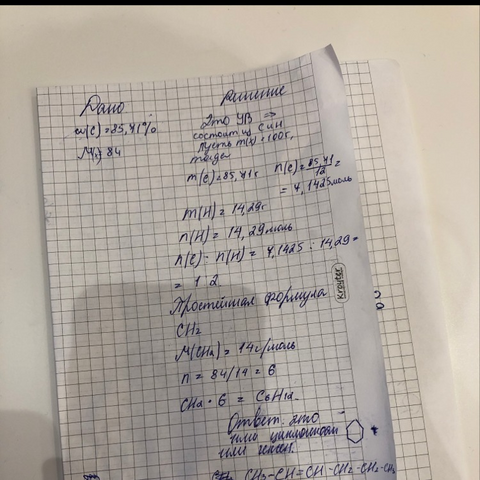 Дано
Решение
ω(C) = 85,71%
M(x) = 84
Это УВ ⇒
состоит из C и H
Пусть m(x) = 100г,
тогда
m(C) = 85,71г n(C) = 85,71/12 =
= 7,1425 моль
m(H) = 14,29г
n(H) = 14,29 моль
n(C) : n(H) = 7,1425 : 14,29 =
= 1 2
Простейшая формула
CH2
M(CH2) = 14 г/моль
n = 84/14 = 6
CH2 · 6 = C6H12
Ответ: это
или циклогексан
или гексен.
CH3-CH=CH-CH2-CH2-CH3
Kroyter